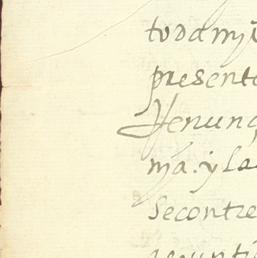 toda mi
present
Henunc
ma. y la
Secontre